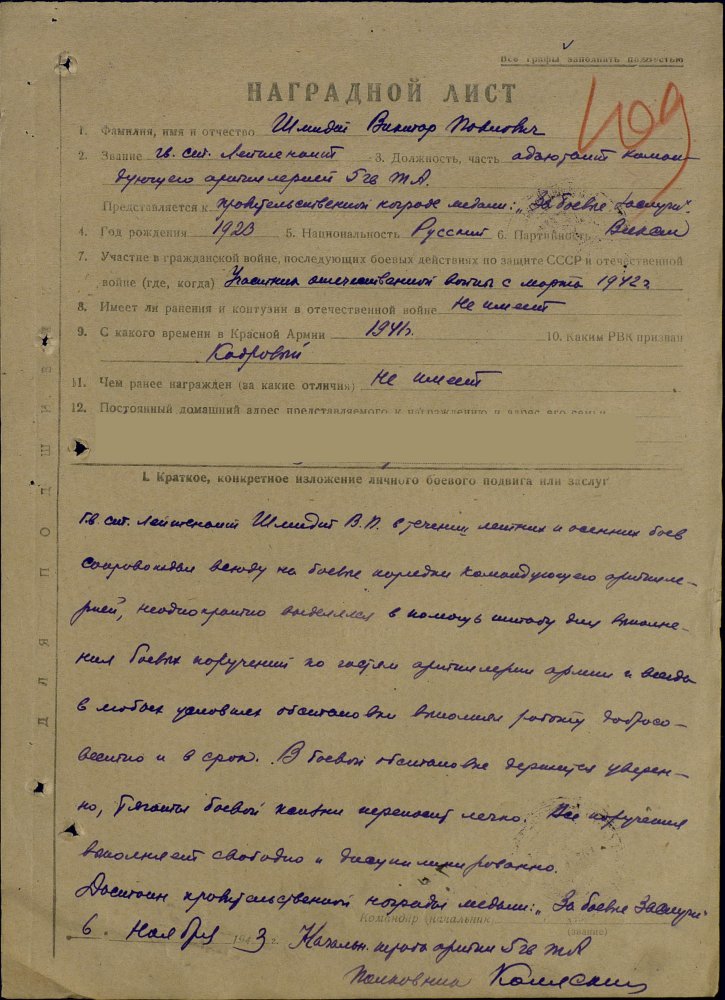 Все графы заполнить полностью
НАГРАДНОЙ ЛИСТ
409
1. Фамилия, имя и отчество Шмидт Виктор Павлович
2. Звание гв. ст. Лейтенант 3. Должность, часть адъютант коман-
дующего артиллерией 5 гв ТА.
Представляется к правительственной награде медали: „За боевые заслуги“.
4. Год рождения 1923 5. Национальность Русский 6. Партийность
7. Участие в гражданской войне, последующих боевых действиях по защите СССР и отечественной
войне (где, когда) Участник отечественной войны с марта 1942 г.
8. Имеет ли ранения и контузии в отечественной войне не имеет
9. С какого времени в Красной Армии 1941г. 10. Каким РВК призван
Кадровый
11. Чем ранее награжден (за какие отличия) не имеет
12. Постоянный домашний адрес представляемого к награждению и адрес его семьи
I. Краткое, конкретное изложение личного боевого подвига или заслуг
Гв. ст. Лейтенант Шмидт В.П. в течении летних и осенних боев
сопровождал всюду на боевые порядки Командующего артилле-
рией, неоднократно выделялся в помощь штабу для выполне-
ния боевых поручений по частям артиллерии армии и всегда
в любых условиях обстановки выполнял работу добросо-
вестно и в срок. В боевой обстановке держится уверен-
но, тяготы боевой жизни переносит легко. Все поручения
выполняет свободно и дисциплинированно.
Достоин правительственной награды медали: „За боевые Заслуги“
Командир (начальник)
(звание)
6 Ноября 1943 г. Началь. штаба артил 5 гв ТА
Полковник
ДЛЯ ПОДШИВКИ